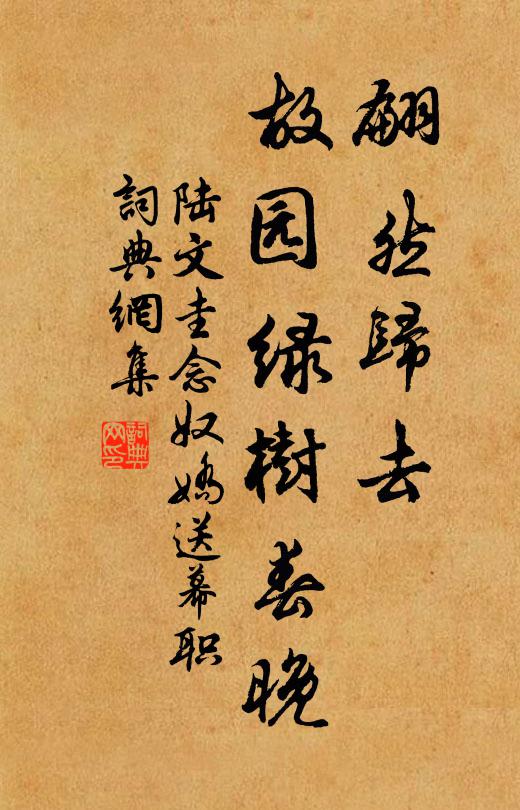 翩然歸去
故园绿樹春晚
陆文圭念奴嬌送幕职
詞典網集
詞典网印